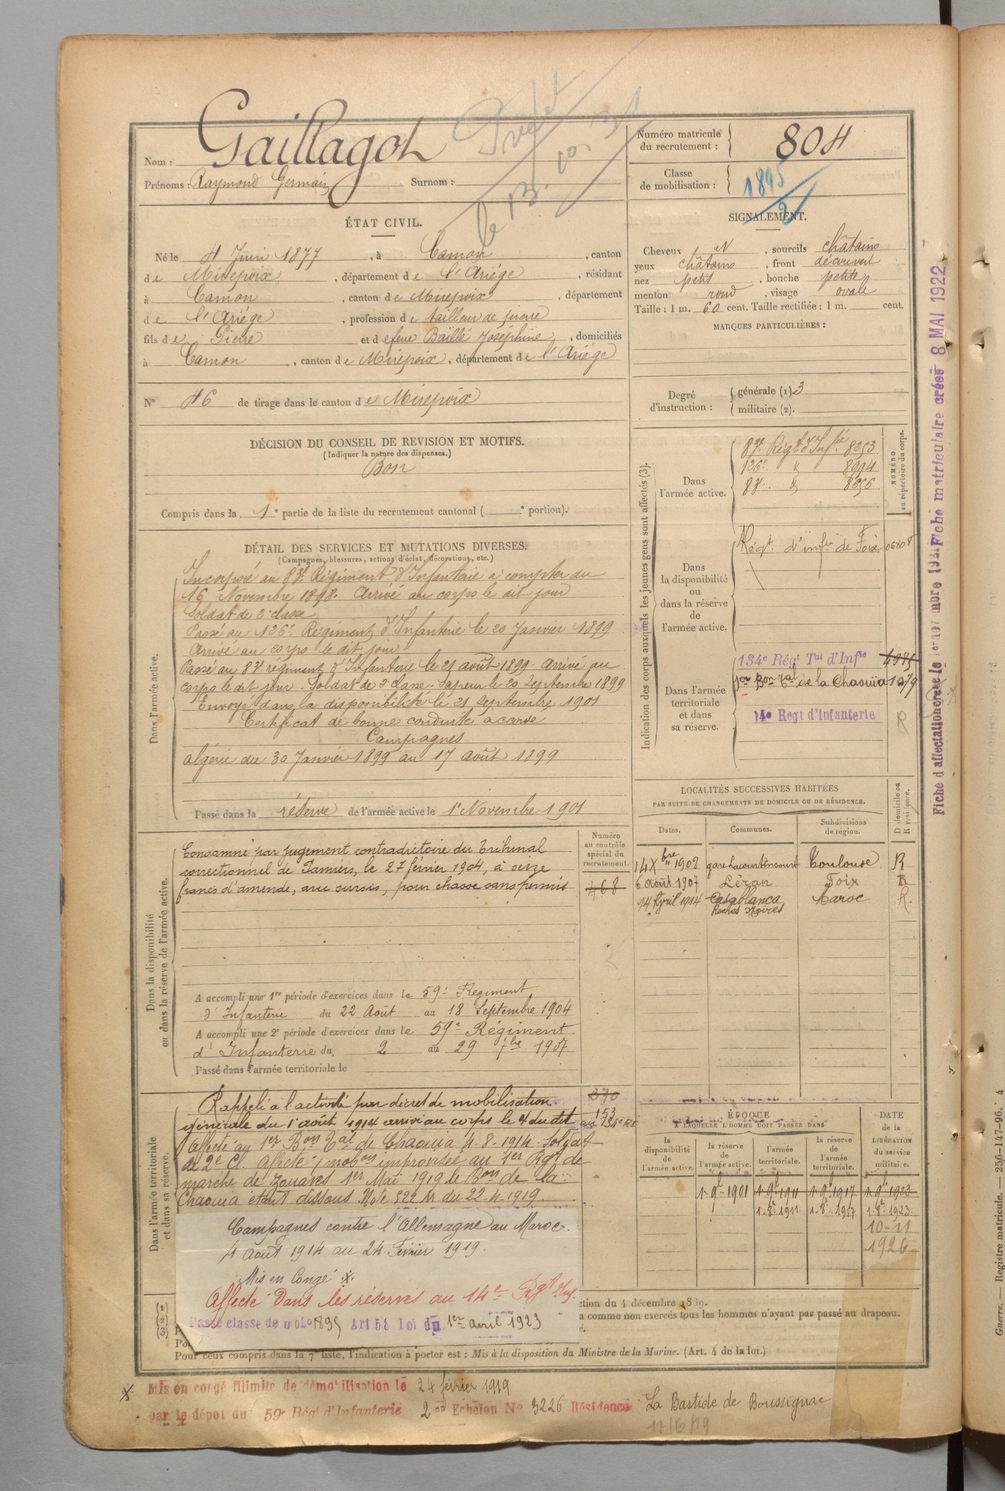 Nom : Gaillagot
Prénoms : Raymond Germain Surnom :
Numéro matricule du recrutement : 804
Classe de mobilisation : 1895
ÉTAT CIVIL.
Né le 4 Juin 1877, à Camon, canton
de Mirepoix, département de l'Ariége, résidant
à Camon, canton de Mirepoix, département
de l'Ariége, profession de tailleur de pierre
fils de Pierre et de feue Baillé Joséphine, domiciliés
à Camon, canton de Mirepoix, département de l'Ariége
N° 46 de tirage dans le canton de Mirepoix
SIGNALEMENT.
Cheveux N, sourcils châtains
yeux châtains, front découvert
nez petit, bouche petite
menton rond, visage ovale
Taille : 1 m. 60 cent. Taille rectifiée : 1 m. cent.
MARQUES PARTICULIÈRES :
Degré d'instruction : générale (1) 3
militaire (2).
DÉCISION DU CONSEIL DE REVISION ET MOTIFS.
(Indiquer la nature des dispenses.)
Bon
Compris dans la 1e partie de la liste du recrutement cantonal ( e portion).
DÉTAIL DES SERVICES ET MUTATIONS DIVERSES.
(Campagnes, blessures, actions d'éclat, décorations, etc.)
Dans l'armée active.
Incorporé au 87e Régiment d'Infanterie à compter du
16 Novembre 1898. Arrivé au corps le dit jour
Soldat de 2e classe
Passé au 126e Régiment d'Infanterie le 20 Janvier 1899
Arrivé au corps le dit jour
Passé au 87e régiment d'Infanterie le 21 août 1899. Arrivé au
corps le dit jour. Soldat de 2e classe. Sapeur le 20 Septembre 1899
Envoyé dans la disponibilité le 21 septembre 1901
Certificat de bonne conduite accordé
Campagnes
Algérie du 30 Janvier 1899 au 17 août 1899
Passé dans la réserve de l'armée active le 1er Novembre 1901
Indication des corps auxquels les jeunes gens sont affectés (3).
NUMÉRO au répertoire du corps.
Dans l'armée active.
87e Régt d'Infie 8353
126e d° 8994
87e d° 8356
Dans la disponibilité ou dans la réserve de l'armée active.
Régt d'infie de Foix 06808
Dans l'armée territoriale et dans sa réserve.
134e Régt Tal d'Infie
1er Bon Tal de la Chaouïa 1279
14e Regt d'Infanterie R
Dans la disponibilité ou dans la réserve de l'armée active.
Condamné par jugement contradictoire du Tribunal
correctionnel de Pamiers, le 27 février 1904, à seize
francs d'amende, avec sursis, pour chasse sans permis
Numéro au contrôle spécial du recrutement.
468
A accompli une 1re période d'exercices dans le 59e Régiment
d'Infanterie du 22 Août au 18 Septembre 1904
A accompli une 2e période d'exercices dans le 59e Régiment
d'Infanterie du 2 au 29 7bre 1907
Passé dans l'armée territoriale le
LOCALITÉS SUCCESSIVES HABITÉES
PAR SUITE DE CHANGEMENTS DE DOMICILE OU DE RÉSIDENCE.
Dates. Communes. Subdivisions de région. D domicile ou R résidence.
14 Xbre 1902 Toulouse R
6 août 1907 Léran Foix R
14 Avril 1914 Casablanca Roches Noires Maroc R.
Dans l'armée territoriale et dans sa réserve.
Rappelé à l'activité par décret de mobilisation
générale du 1er août 1914 arrivé au corps le 4 du dit
Affecté au 1er Bon Tal de Chaouïa 4-8-1914. Soldat
de 2e Cl. Affecté (mobon improvisée au 1er Rgt de
marche de Zouaves 1er Mai 1919 le Bon de la
Chaouïa étant dissous. Note 522 M du 22.4.1919
Campagnes contre l'Allemagne au Maroc.
4 Août 1914 au 24 Février 1919.
Mis en Congé *.
Affecté dans les réserves au 14e Rgt Inf.
Passé classe de mob 1895 Art 58 Loi du 1er avril 1923
153
ÉPOQUE
À LAQUELLE L'HOMME DOIT PASSER DANS
la disponibilité de l'armée active. la réserve de l'armée active. l'armée territoriale. la réserve de l'armée territoriale.
DATE de la LIBÉRATION du service militaire.
1-9bre-1901 1-9bre-1911 1-9bre-1917 1-9bre-1923
1-8-1911 1-8-1917 1-8-1923
10-11
1926
(1)
(2)
(3)
du 4 décembre 1889.
comme non exercés tous les hommes n'ayant pas passé au drapeau.
Pour ceux compris dans la 7e liste, l'indication à porter est : Mis à la disposition du Ministre de la Marine. (Art. 4 de la loi.)
* Mis en congé illimité de démobilisation le 24 février 1919
par le dépot du 59e Régt d'Infanterie 2e Echelon N° 3226 Résidence La Bastide de Boussignac
Guerre. — Registre matricule. — 256-147-96.